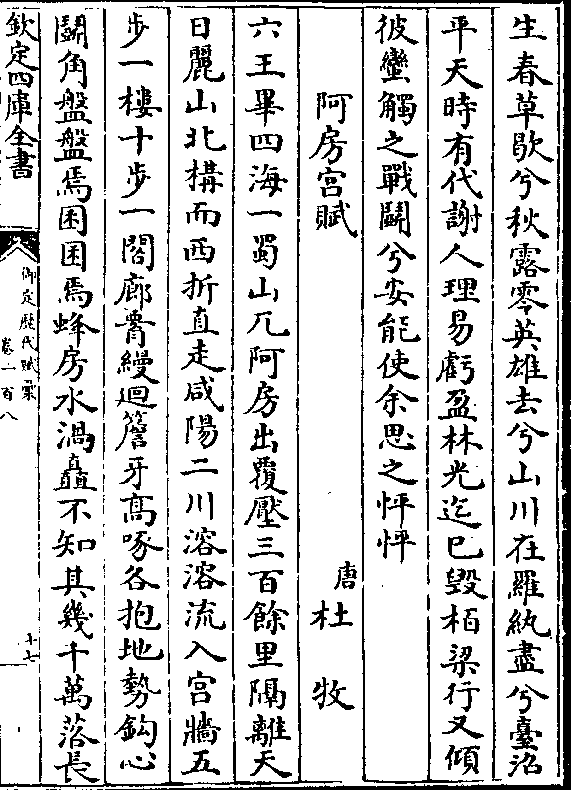 生春草歇兮秋露零英雄去兮山川在羅紈盡兮臺沼
平天時有代謝人理易虧盈林光迄已毁栢梁行又傾
彼蠻觸之戰鬭兮安能使余思之怦怦
阿房宫賦
唐杜牧
六王畢四海一蜀山兀阿房出覆壓三百餘里隔離天
日麗山北構而西折直走咸陽二川溶溶流入宫牆五
步一樓十步一閣廊腎縵迴簷牙髙啄各抱地勢鈎心
鬭角盤盤焉囷囷焉蜂房水渦矗不知其幾千萬落長
欽定四庫全書
御定歴代賦彚
卷一百八
十七